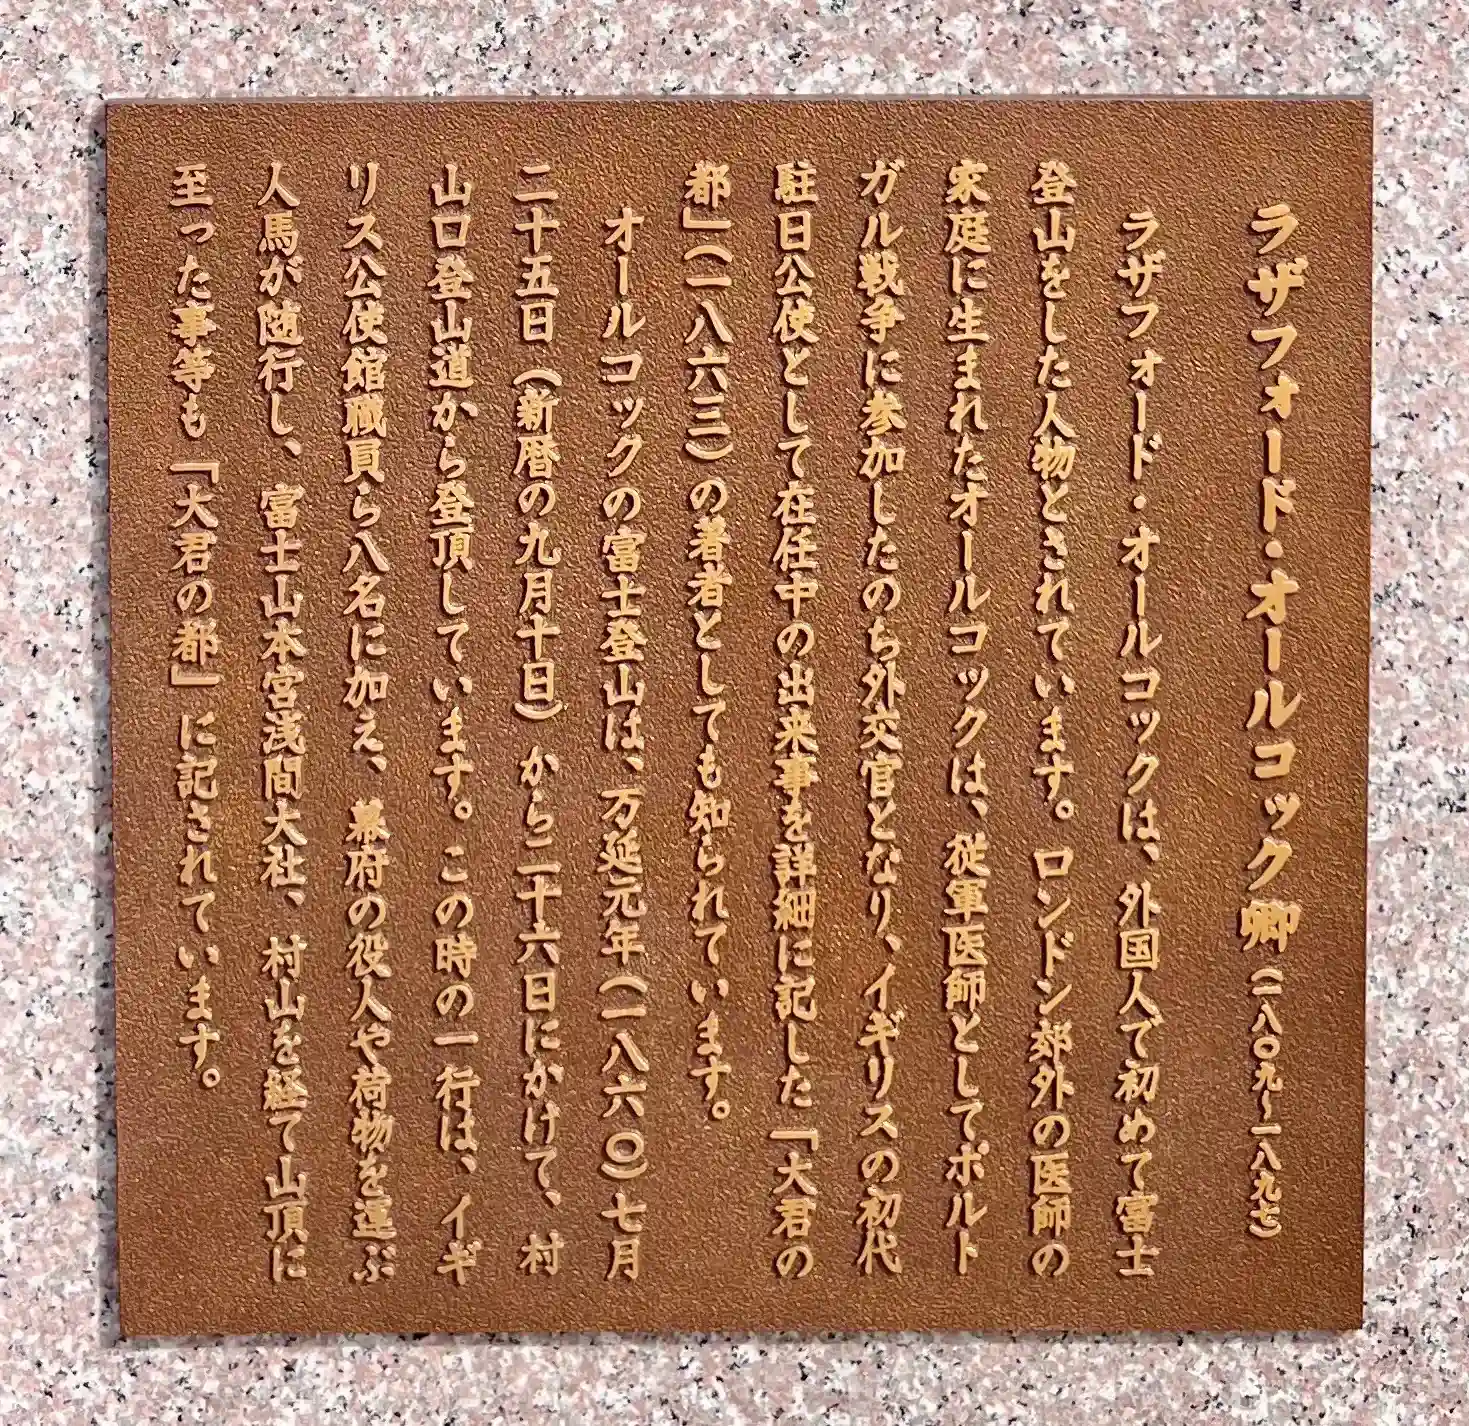 ラザフォード・オールコック卿(一八〇九〜一八九七)
ラザフォード・オールコックは、外国人で初めて富士
登山をした人物とされています。ロンドン郊外の医師の
家庭に生まれたオールコックは、従軍医師としてポルト
ガル戦争に参加したのち外交官となり、イギリスの初代
駐日公使として在任中の出来事を詳細に記した「大君の
都」(一八六三)の著者としても知られています。
オールコックの富士登山は、万延元年(一八六〇)七月
二十五日(新暦の九月十日)から二十六日にかけて、村
山口登山道から登頂しています。この時の一行は、イギ
リス公使館職員ら八名に加え、幕府の役人や荷物を運ぶ
人馬が随行し、富士山本宮浅間大社、村山を経て山頂に
至った事等も「大君の都」に記されています。